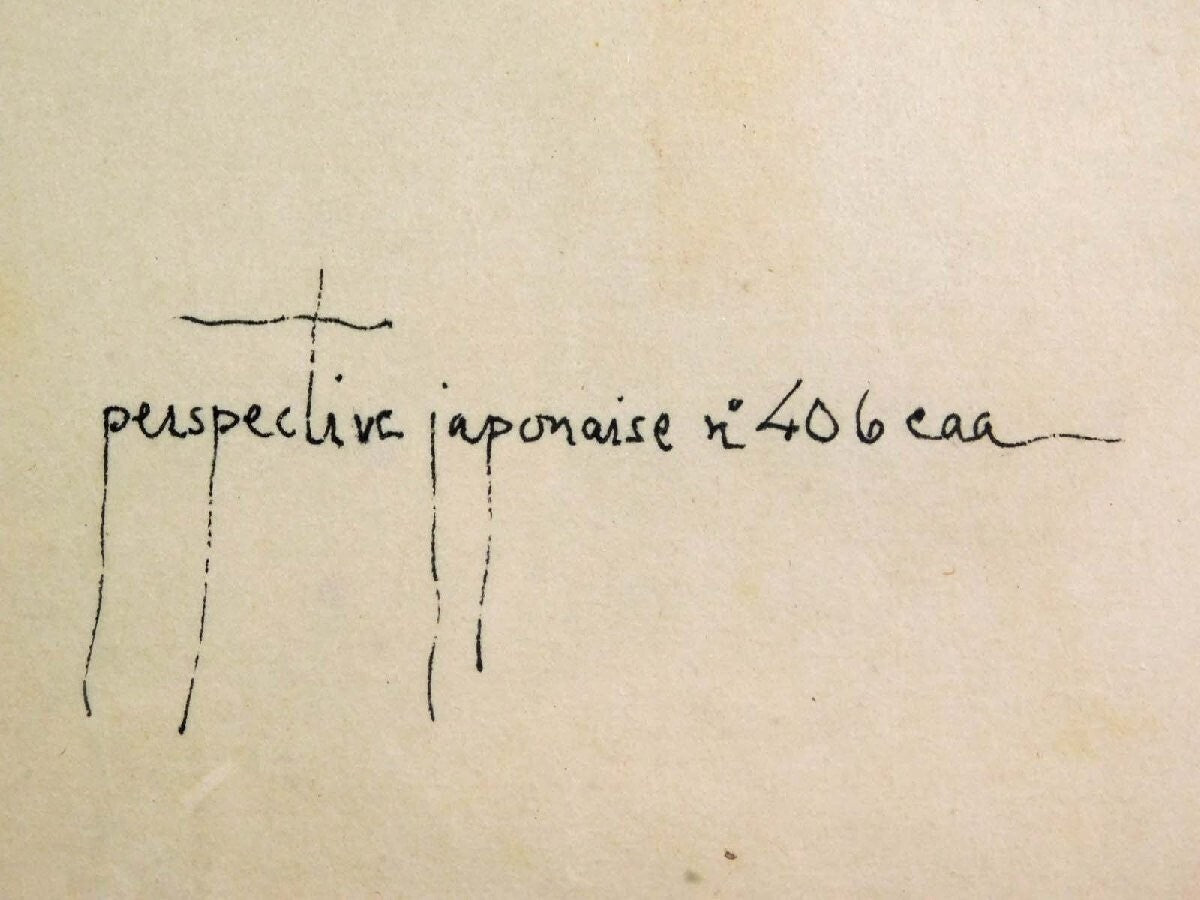 perspective japonaise n° 406 eaa